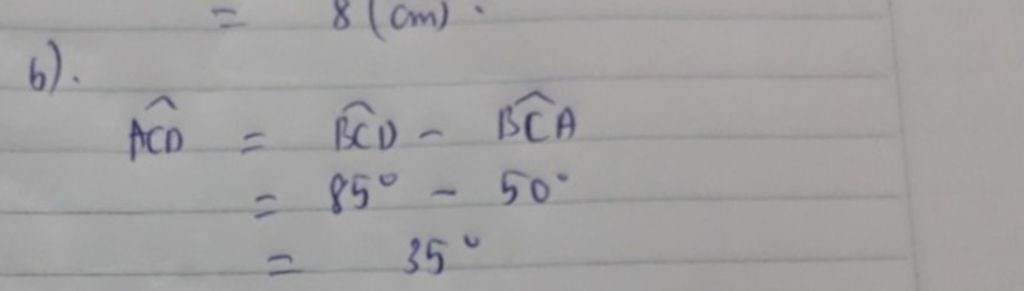 = 8 (cm).
b).
ACD̂ = BĈD - BĈA
= 85° - 50°
= 35°